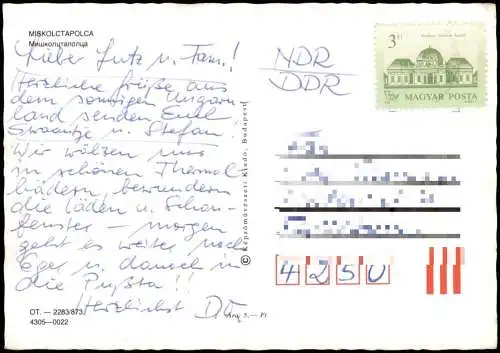 MISKOLCTAPOLCA
Мишколцтаполца
Lieber Lutz u. Fam.!
Herzliche Grüße aus
dem sonnigen Ungarn
land senden Euch
Swantje u. Stefan!
Wir wälzen uns
in schönen Thermal
bädern, bewundern
die Läden u. Schau-
fenster – morgen
geht es weiter nach
Eger u. danach in
die Pußta!!
Herzlichst
OT. — 2283/873.
4305—0022
© Képzőművészeti Kiadó, Budapest
Ára 3.— Ft
NDR
DDR
3 Ft
MAGYAR POSTA
4250